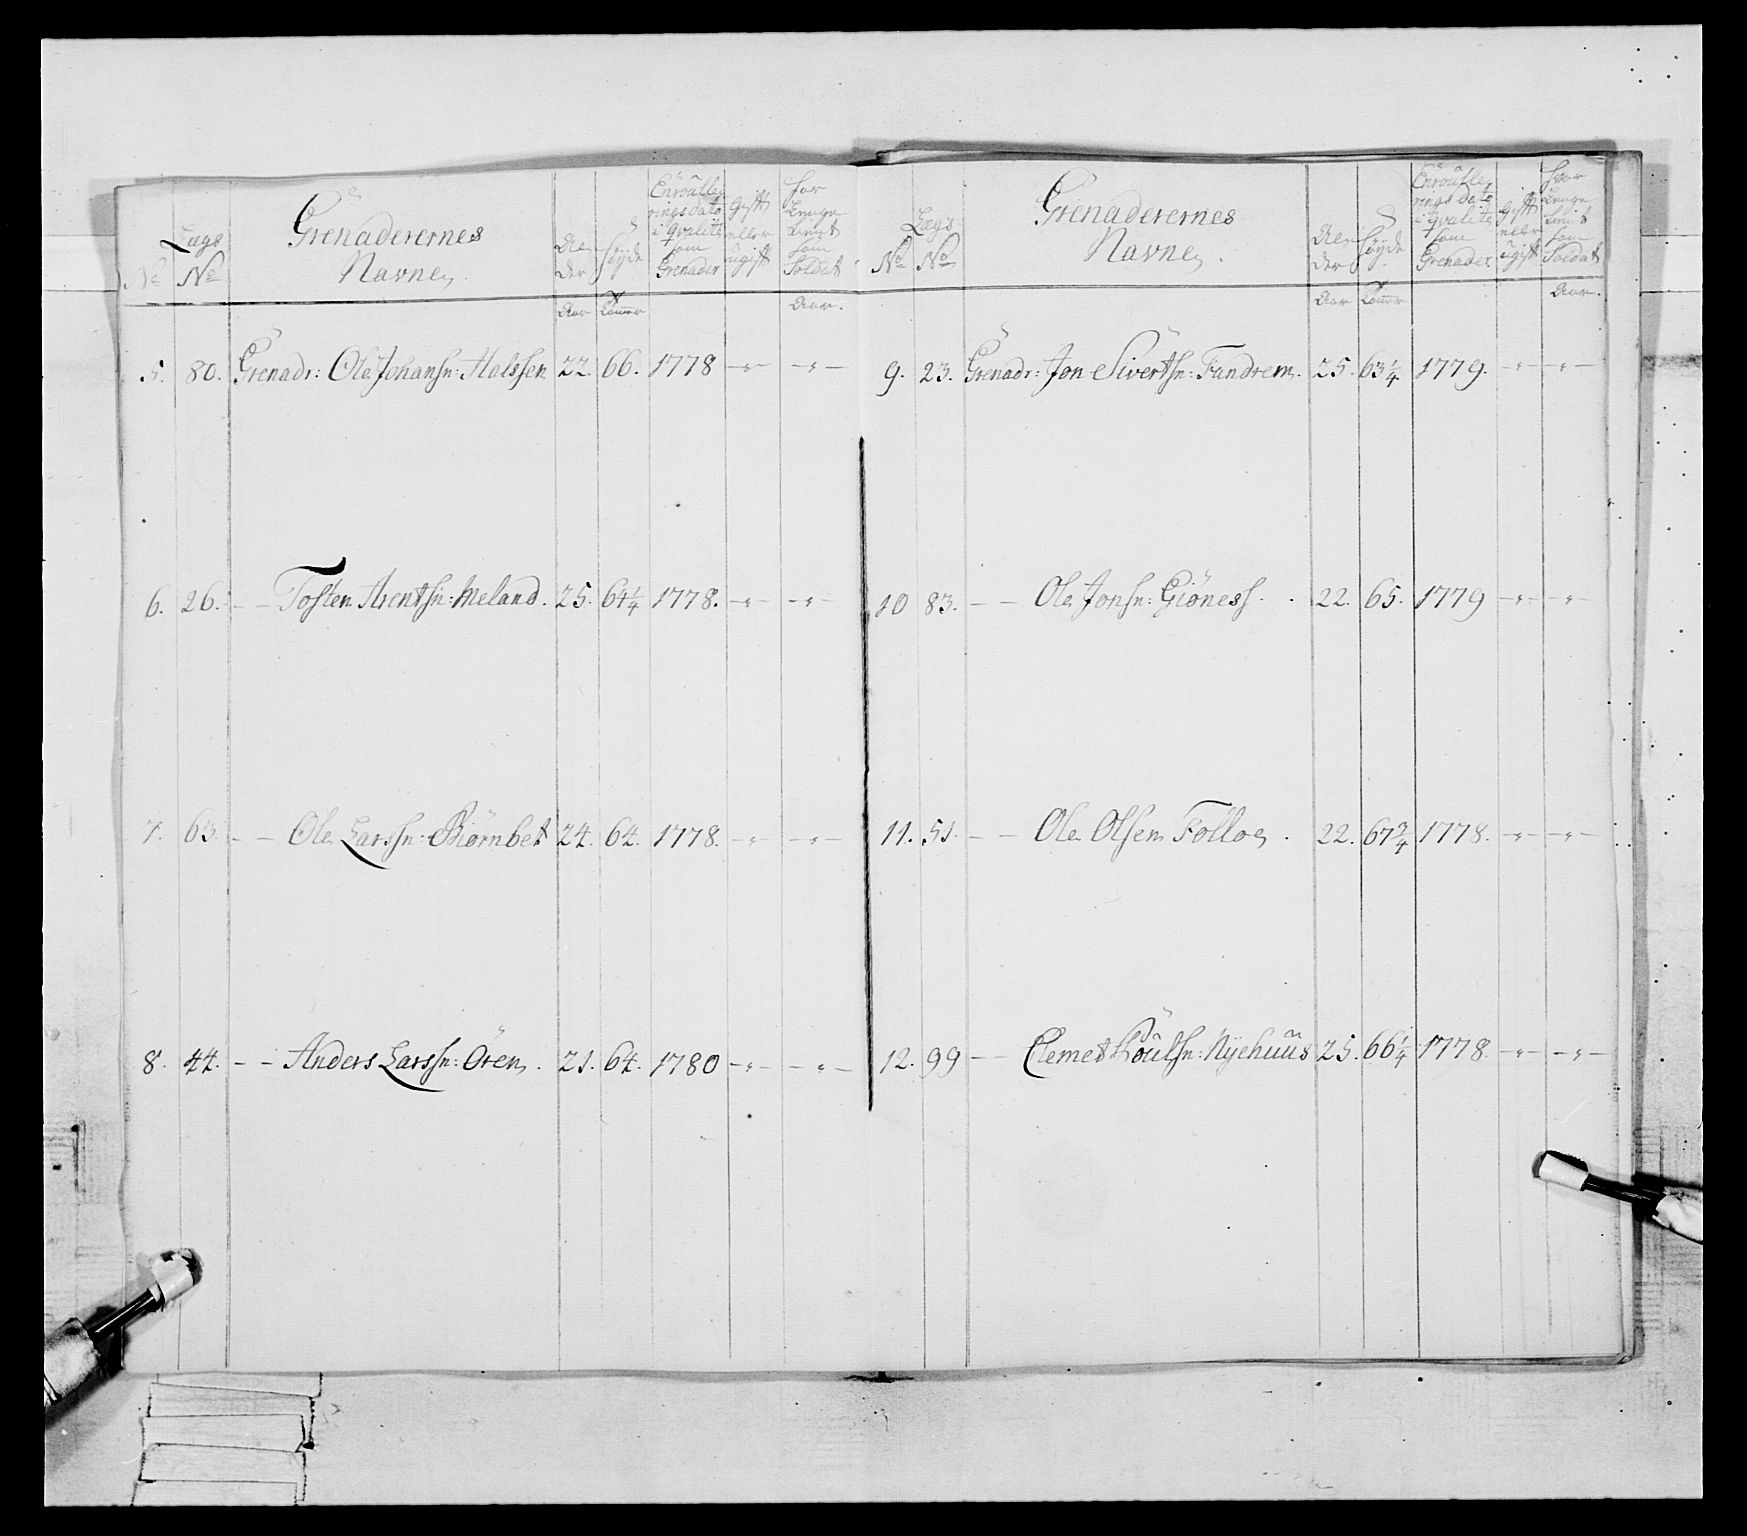 No Lægs No Grenaderernes Navne Al-der Høyde Enroullerings dato i qvalite som Grenader Gift eller ugift For Længe tient som Soldat
Aar Tommer Aar.
5. 80. Grenadr: Ole Johansn: Halssen 22. 66. 1778 -"- -"-
6. 26. - - Tosten Arentsn: Meland. 25. 64 1/4 1778. -"- -"-
7. 63. - - Ole Larssn: Biörnbet 24. 64. 1778. -"- -"-
8. 44. - - Anders Larssn: Ören. 21. 64. 1780 -"- -"-
No Lægs No Grenaderernes Navne. Al-der Høyde Enroullerings dato i qvalite som Grenader Gift eller ugift hvor Længe tient som Soldat
Aar Tommer Aar.
9. 23. Grenadr: Jon Sivertsn: Fandrem. 25. 63 1/4 1779. -"- -"-
10 83. - - Ole Jonsn: Giöness. . 22. 65. 1779 -"- -"-
11. 51. - - Ole Olsen Folloe . 22. 67 2/4 1778. -"- -"-
12. 99 - - Clemet Poulsn: Nyehuus 25. 66 1/4 1778. -"- -"-